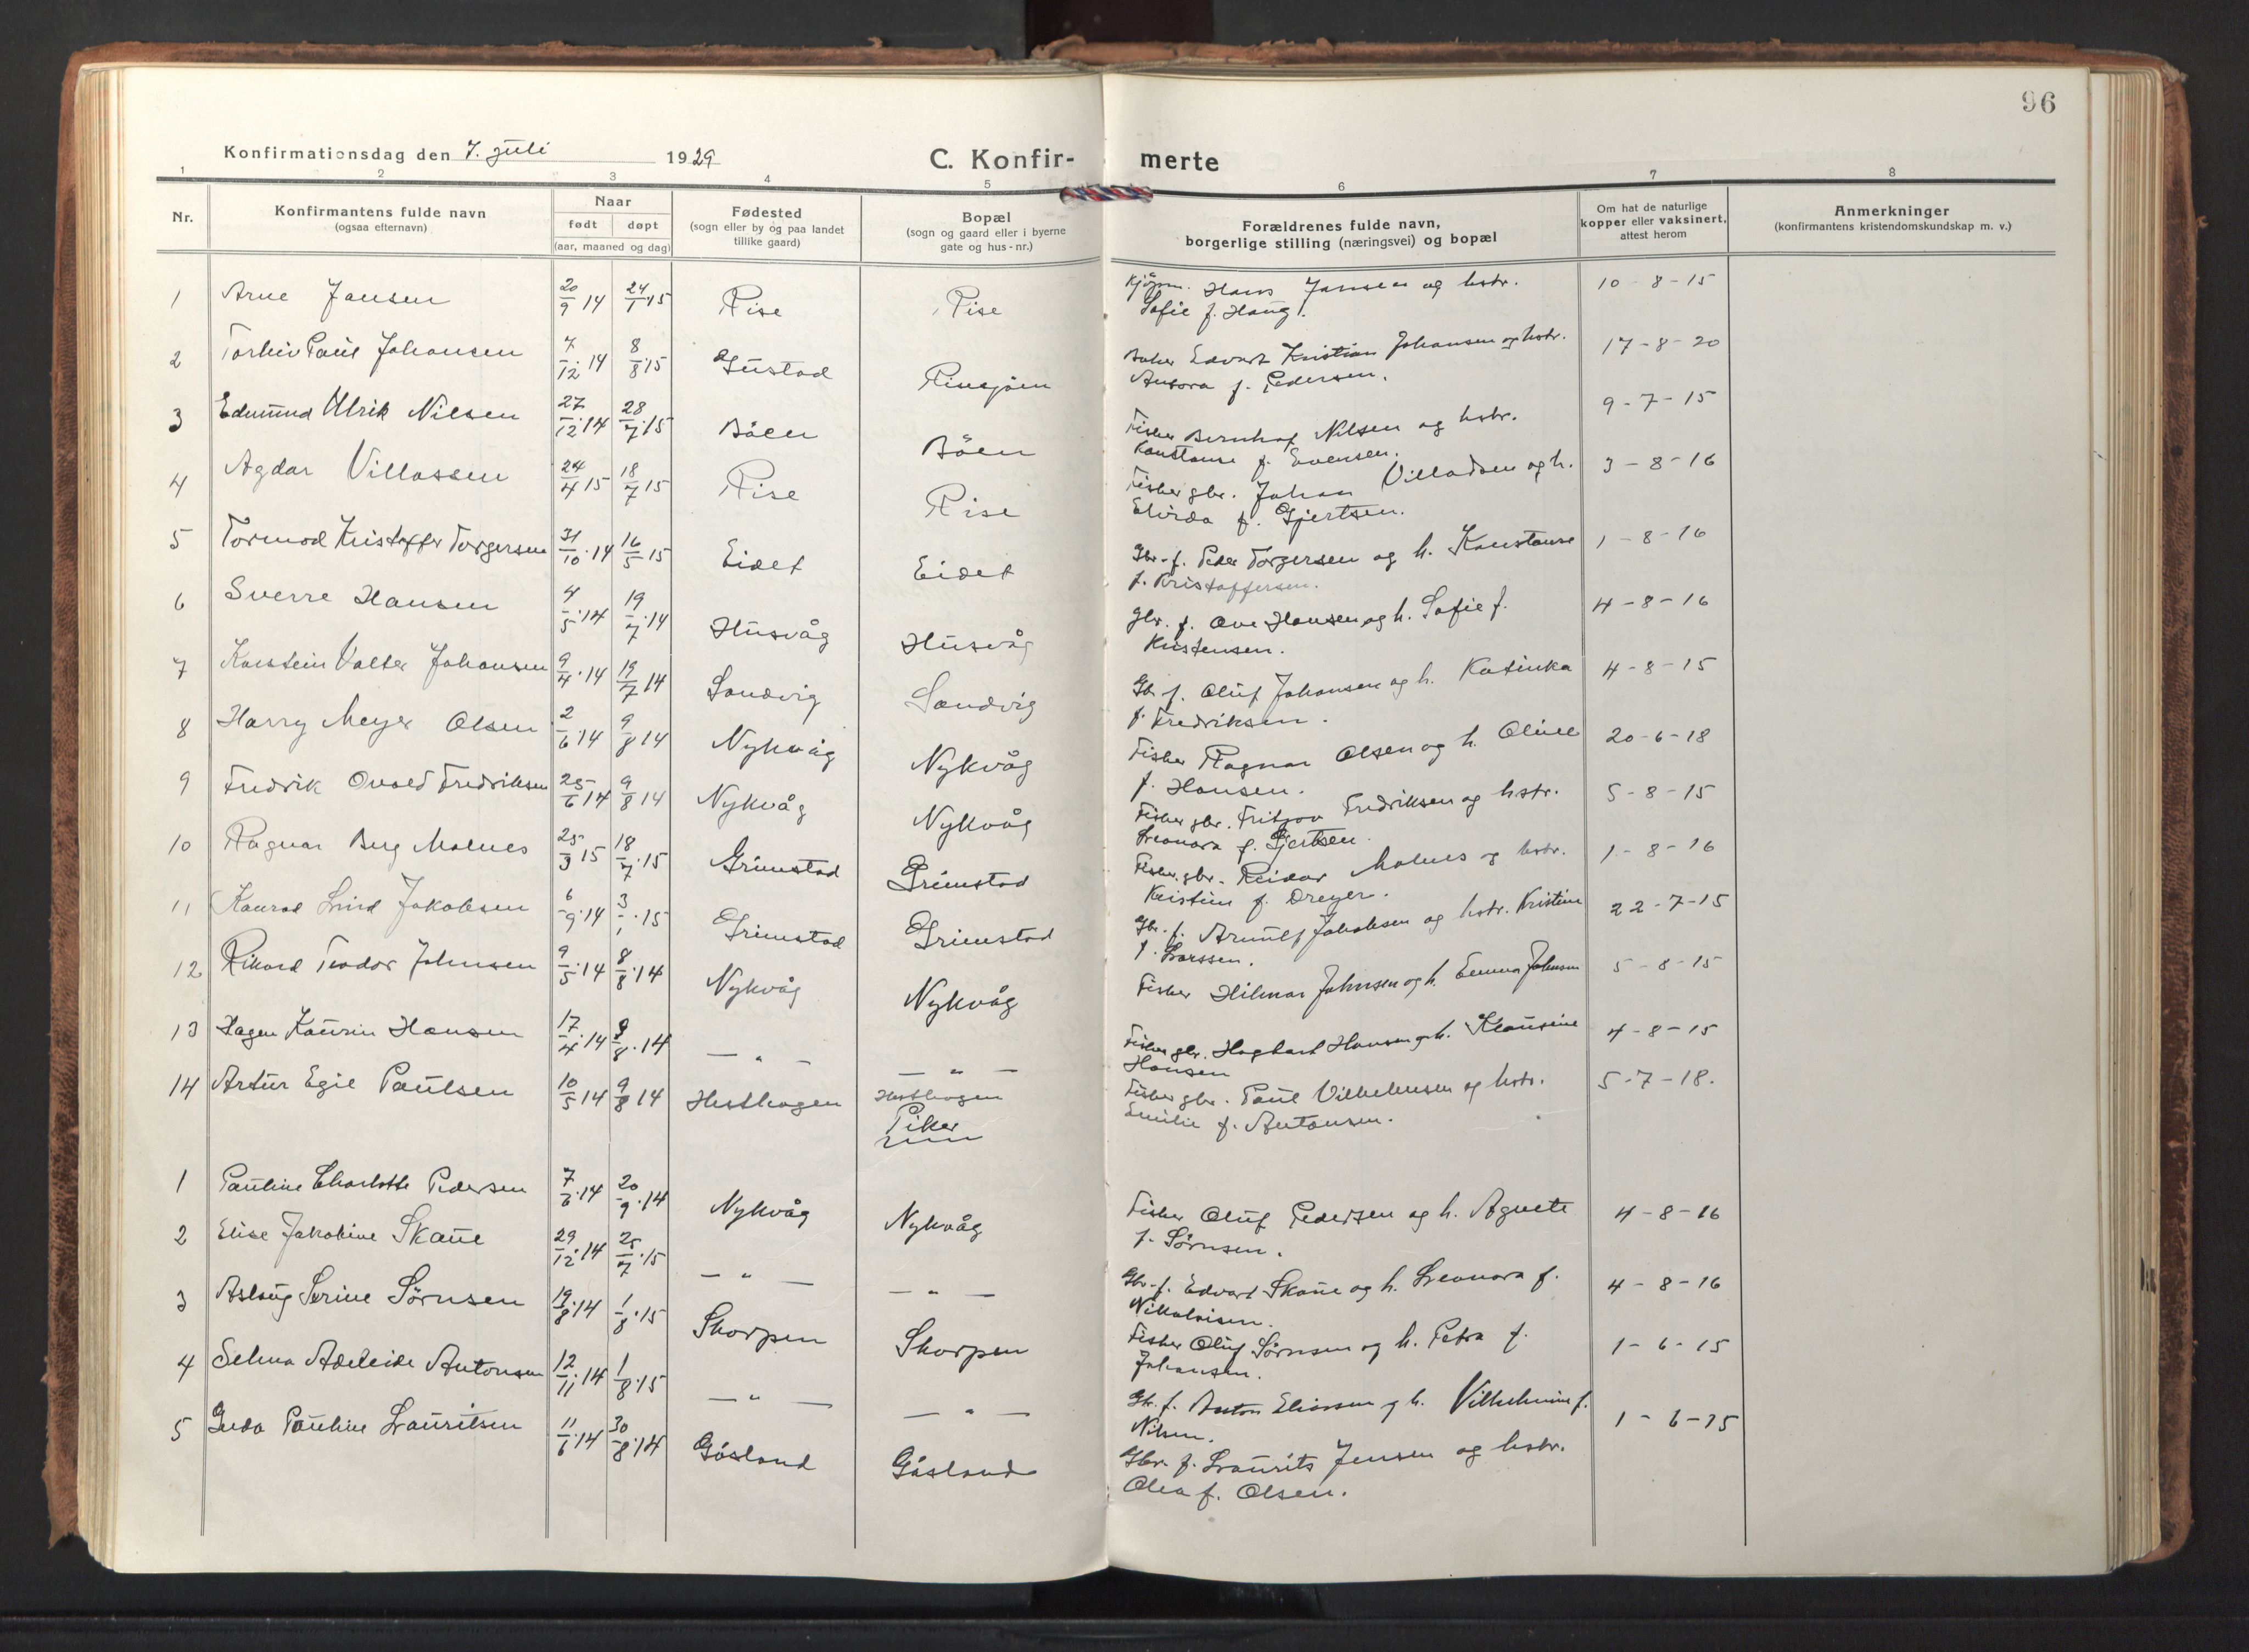 96
Konfirmationsdag den 7. juli 1929
C. Konfir- merte
1 2 3 4 5 6 7 8
Nr.
Konfirmantens fulde navn
(ogsaa efternavn)
Naar
født døpt
(aar, maaned og dag)
Fødested
(sogn eller by og paa landet
tillike gaard)
Bopæl
(sogn og gaard eller i byerne
gate og hus-nr.)
Forældrenes fulde navn,
borgerlige stilling (næringsvei) og bopæl
Om hat de naturlige
kopper eller vaksinert,
attest herom
Anmerkninger
(konfirmantens kristendomskundskap m. v.)
1 Arne Jansen 20/9 14 24/1 15 Rise Rise Kjøpm. Hans Jansen og hstr. 10-8-15
Sofie f. Haug.
2 Paul Johansen 7/12 14 8/8 15 Gustad Edvart Kristian Johansen og hstr. 17-8-20
Aurora f. Pedersen.
3 Edmund Ulrik Nilsen 27/12 14 28/7 15 Bøen Bøen Fisker Nilsen og hstr. 9-7-15
Konstanse f. Evensen.
4 Agdar Villassen 24/4 15 18/7 15 Rise Rise Fisker gbr. Johan Villadsen og h. 3-8-16
Elvida f. Gjertsen.
5 Tormod Kristoffer Torgersen 31/10 14 16/5 15 Eidet Eidet Gbr. f. Peder Torgersen og h. Konstanse 1-8-16
f. Kristoffersen.
6 Sverre Hansen 4/5 14 19/7 14 Husvåg Husvåg Gbr. f. Ove Hansen og h. Sofie f. 4-8-16
Kristensen.
7 Karstein Valter Johansen 9/4 14 19/7 14 Sandvig Sandvig Gbr. f. Oluf Johansen og h. Katinka 4-8-15
f. Fredriksen.
8 Harry Meyer Olsen 2/6 14 9/8 14 Nykvåg Nykvåg Fisker Ragnar Olsen og h. Oline 20-6-18
f. Hansen.
9 Fredrik Fredriksen 25/6 14 9/8 14 Nykvåg Nykvåg Fisker gbr. Fritjov Fredriksen og hstr. 5-8-15
Leonora f. Gjertsen.
10 Ragnar Berg Molnes 25/3 15 18/7 15 Grimstad Grimstad Fisker gbr. Reidar Molnes og hstr. 1-8-16
Kristine f. Dreyer.
11 Konrad Lind Jakobsen 6/9 14 3/1 15 Grimstad Grimstad Gbr. f. Arnulf Jakobsen og hstr. Kristine 22-7-15
f. Larssen.
12 Rikard Teodor Johnsen 9/5 14 8/8 14 Nykvåg Nykvåg Fisker Hilmar Johnsen og h. Emma Johnsen 5-8-15
13 Hagen Kaurin Hansen 17/4 14 9/8 14 — " — — " — Fisker gbr. Hagbart Hansen og h. Klausine 4-8-15
Hansen
14 Artur Egil Paulsen 10/5 14 9/8 14 Hesthagen Hesthagen Fisker gbr. Paul Vilhelmsen og hstr. 5-7-18.
Emilie f. Antonsen.
Piker
1 Pauline Charlotte Pedersen 7/6 14 20/9 14 Nykvåg Nykvåg Fisker Oluf Pedersen og h. Agnete 4-8-16
f. Sørnsen.
2 Elise Jakobine Skaue 29/12 14 25/7 15 — " — — " — Gbr. f. Edvart Skaue og h. Leonora f. 4-8-16
Nikolaisen.
3 Aslaug Serine Sørnsen 19/8 14 1/8 15 Skorpen Skorpen Fisker Oluf Sørnsen og h. Petra f. 1-6-15
Johansen.
4 Selma Adeleide Antonsen 12/11 14 1/8 15 — " — — " — Gbr. f. Anton Eliassen og h. Vilhelmine f. 1-6-15
Nilsen.
5 Pauline Lauritsen 11/6 14 30/8 14 Gåsland Gåsland Gbr. f. Laurits Jensen og hstr.
Olea f. Olsen.